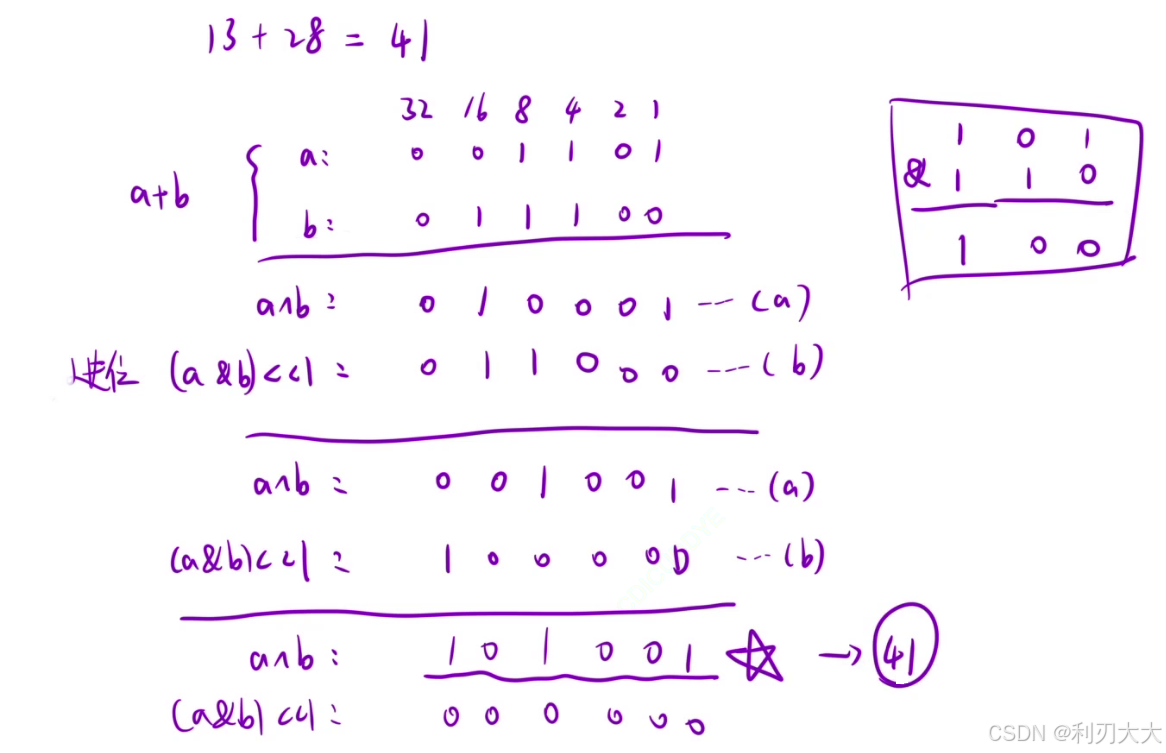 13 + 28 = 41
32 16 8 4 2 1
a: 0 0 1 1 0 1
a+b
b: 0 1 1 1 0 0
1 0 1
& 1 1 0
1 0 0
a∧b: 0 1 0 0 0 1 --- (a)
进位 (a&b)<<1: 0 1 1 0 0 0 --- (b)
a∧b: 0 0 1 0 0 1 --- (a)
(a&b)<<1: 1 0 0 0 0 0 --- (b)
a∧b: 1 0 1 0 0 1 ☆ → 41
(a&b)<<1: 0 0 0 0 0 0
CSDN @利刃大大